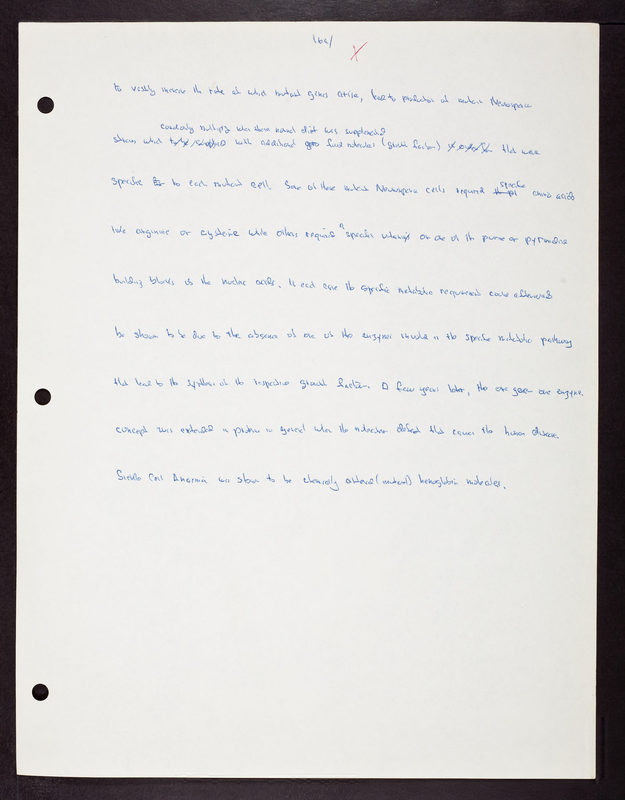 16a/
to vastly increase the rate at which mutant genes arise, lead to production of mutant Neurospora
could only multiply when there normal diet was supplemented
strains which with additional food molecules (growth factors) that were
specific to each mutant cell. Some of these mutant Neurospora cells required specific amino acids
like arginine or cysteine while others required specific vitamins or one of the purine or pyrimidine
building blocks of the nucleic acids. In each case the specific metabolic requirement could afterward
be shown to be due to the absence of one of the enzymes involved in the specific metabolic pathway
that lead to the synthesis of the respective growth factor. A few years later, the one gene one enzyme
concept was extended to proteins in general when the molecular defect that causes the human disease
Sickle Cell Anaemia was shown to be chemically altered (mutant) hemoglobin molecules.